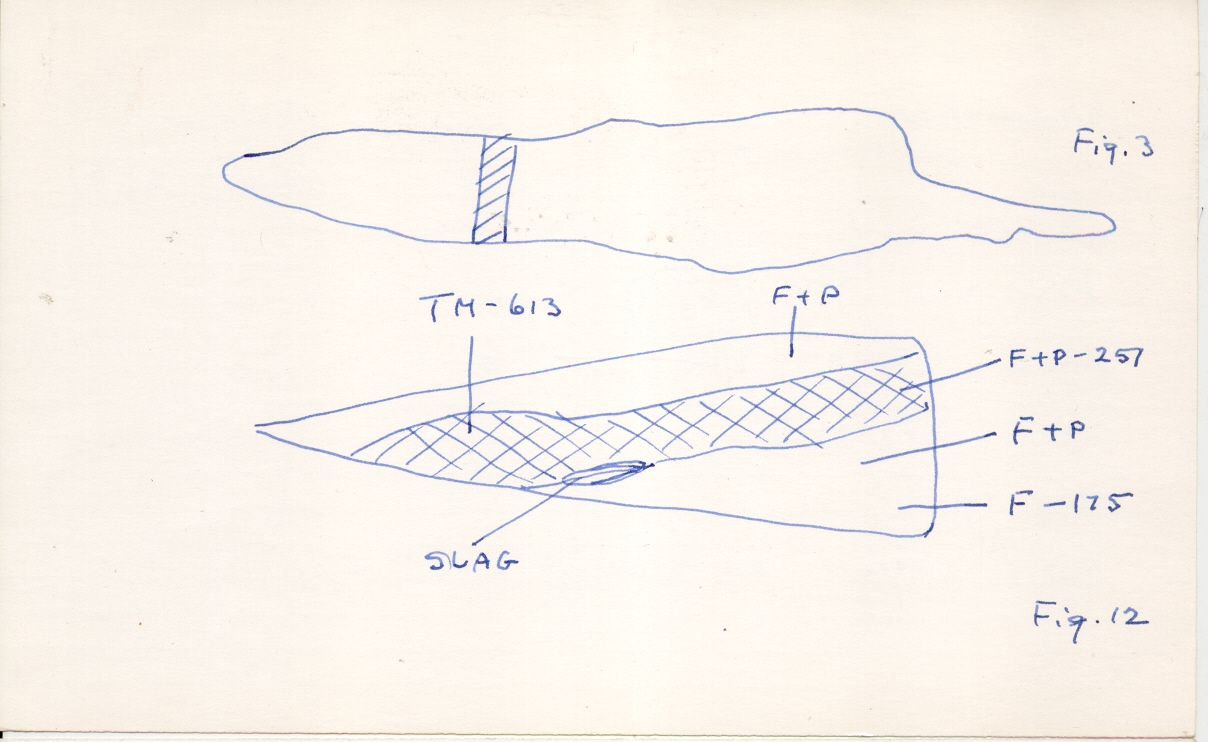 Fig. 3
TM-613
F+P
F+P-257
F+P
F-175
SLAG
Fig. 12